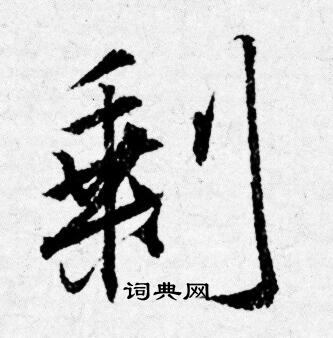 剩
词典网